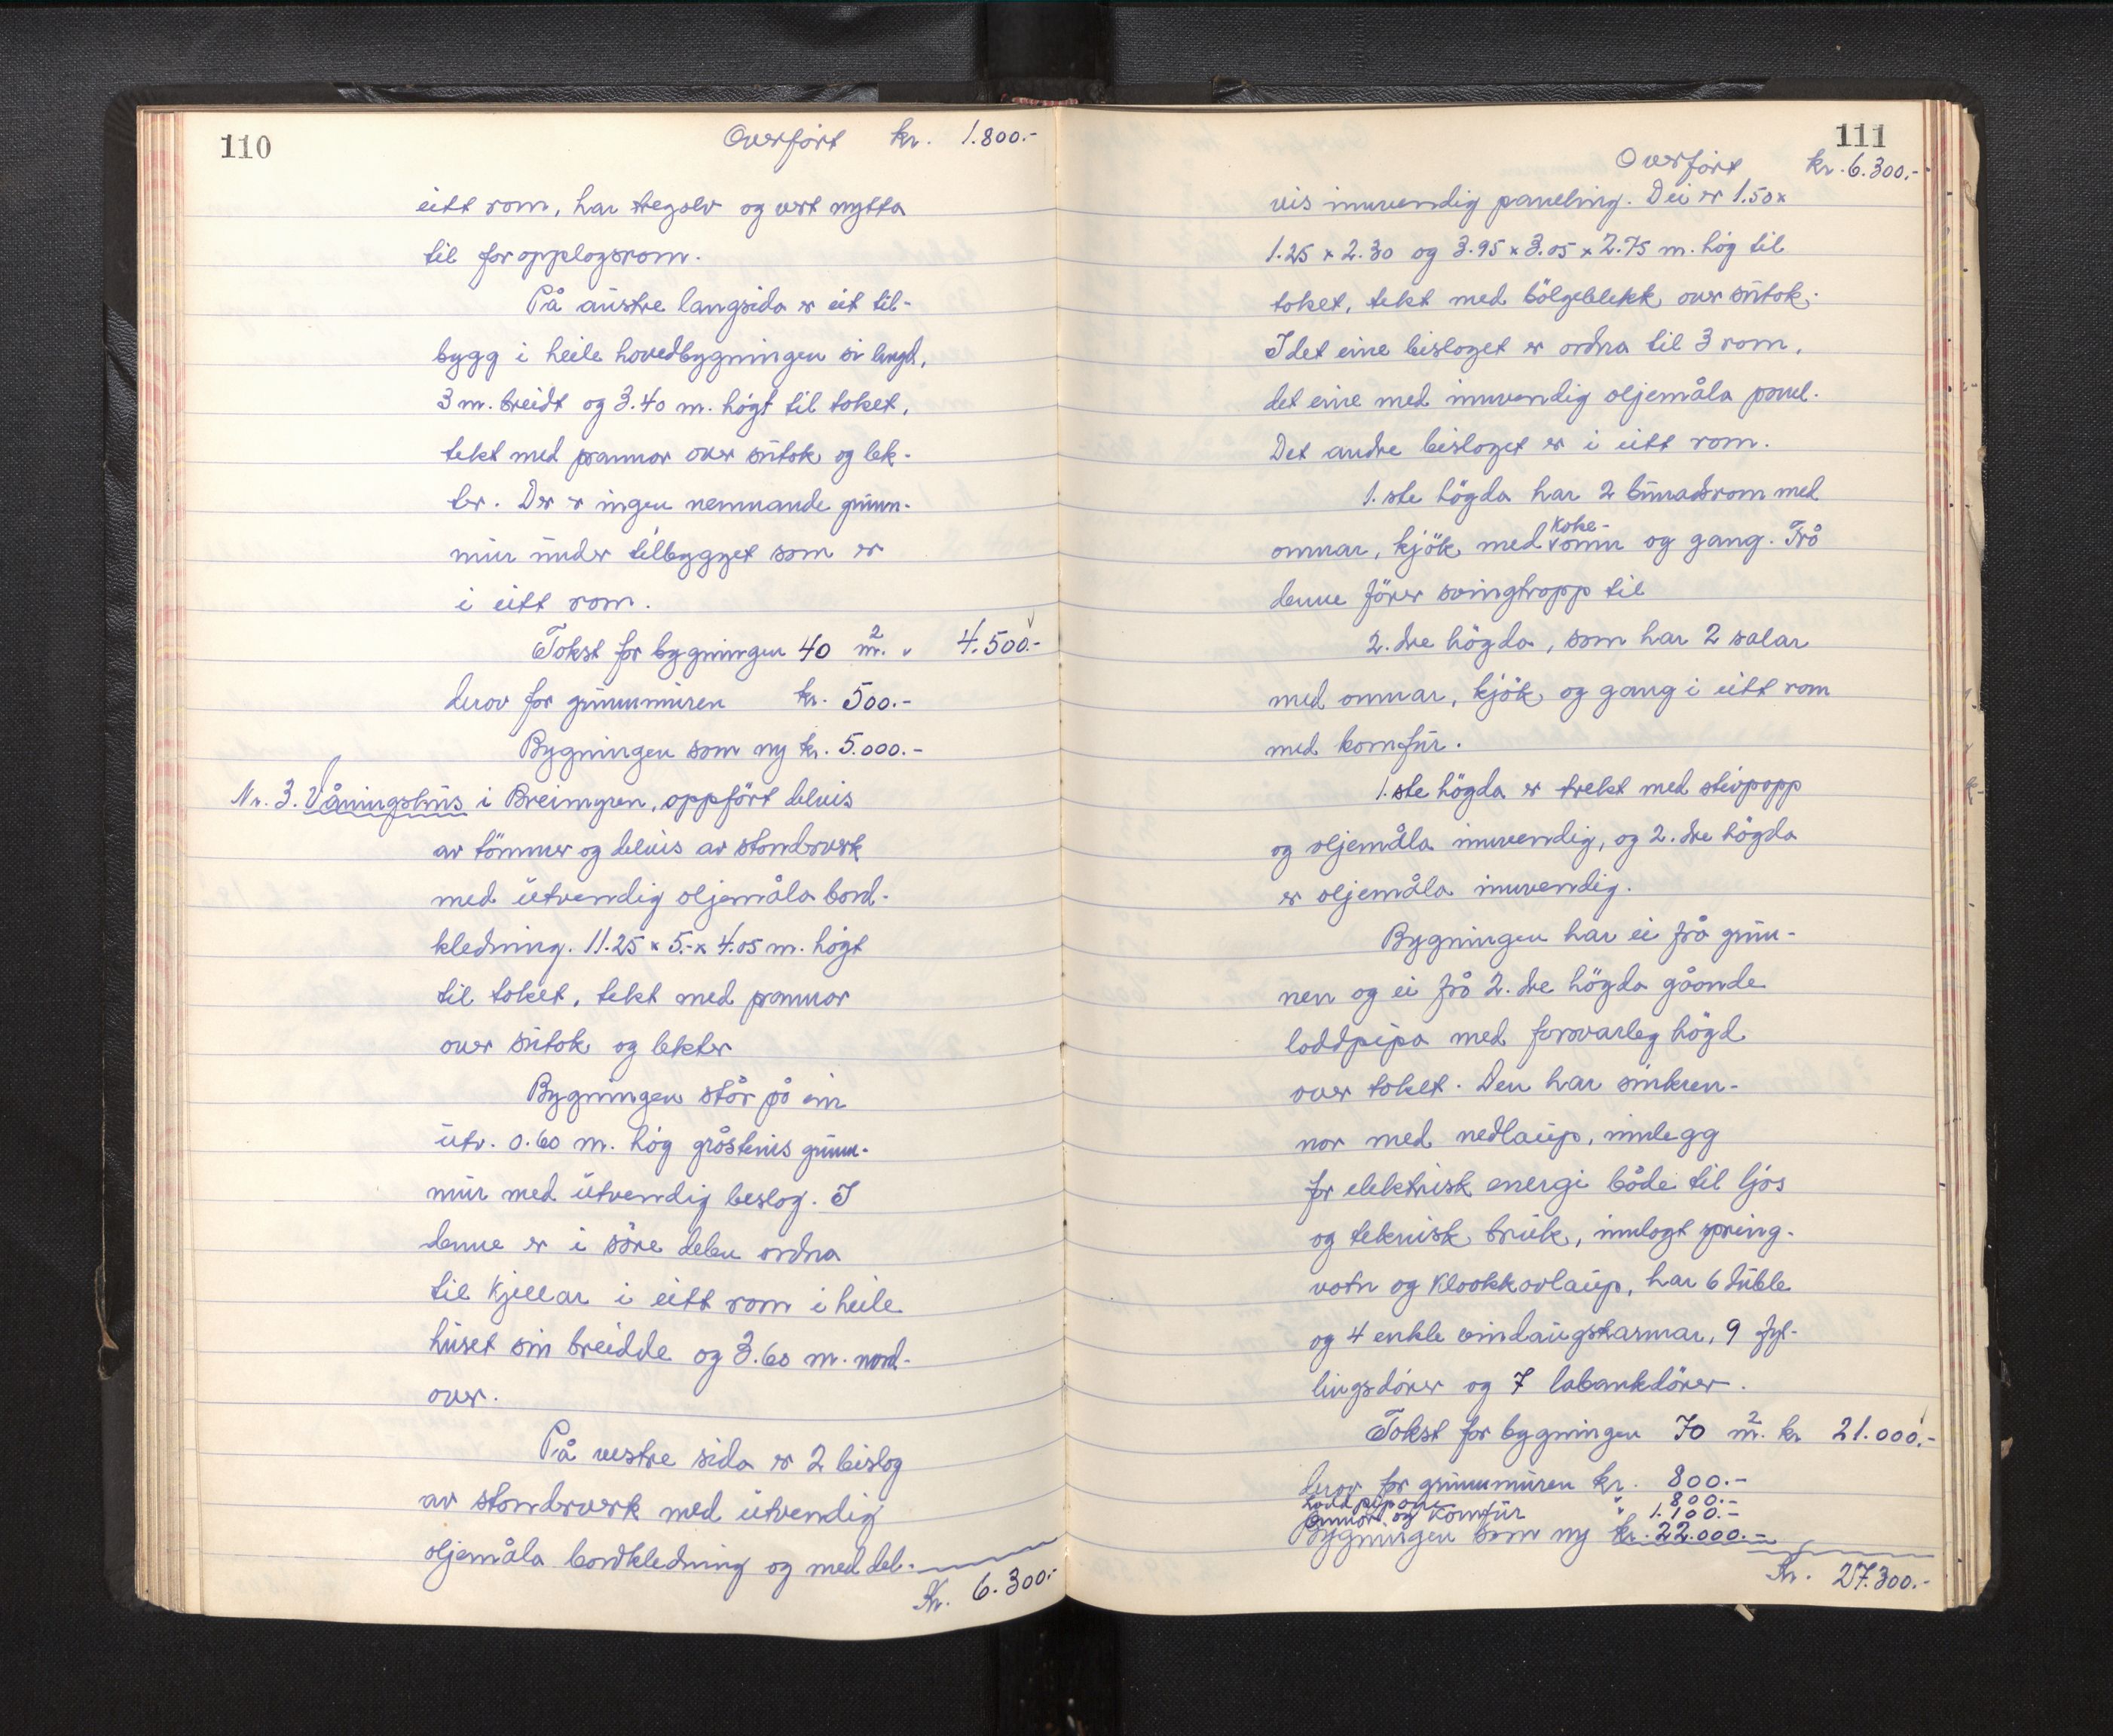 110
Overfört kr. 1.800.-
eitt rom, har tregolv og vert nytta
til foropplagsrom.
På austre langsida er eit til-
bygg i heile hovedbygningen si lengd,
3 m. breidt og 3.40 m. högt til taket,
tekt med pannor over sutak og lek-
ter. Der er ingen nemnande grunn-
mur under tilbygget som er
i eitt rom.
Takst for bygningen 40 m². " 4.500.-
derav for grunnmuren kr. 500.-
Bygningen som ny kr. 5.000.-
Nr. 3. Våningshus i Breimyren, oppfört delvis
av tömmer og delvis av stenderverk
med utvendig oljemåla bord-
kledning. 11.25 x 5.- x 4.05 m. högt
til taket, tekt med pannor
over sutak og lekter
Bygningen står på ein
utv. 0.60 m. hög gråsteins grunn-
mur med utvendig beslag. I
denne er i söre delen ordna
til kjellar i eitt rom i heile
huset sin breidde og 3.60 m. nord-
over.
På vestre sida er 2 beislag
av stenderverk med utvendig
oljemåla bordkledning og med del-
Kr. 6.300.-
111
Overfört kr. 6.300.-
vis innvendig paneling. Dei er 1.50 x
1.25 x 2.30 og 3.95 x 3.05 x 2.75 m. hög til
taket, tekt med bölgeblekk over sutak.
I det eine beislaget er ordna til 3 rom,
det eine med innvendig oljemåla panel.
Det andre beislaget er i eitt rom.
1.ste högda har 2 bunadsrom med
omnar, kjök med koke-omn og gang. Frå
denne förer svingtrapp til
2.dre högda, som har 2 salar
med omnar, kjök og gang i eitt rom
med komfur.
1.ste högda er trekt med stivpapp
og oljemåla innvendig, og 2.dre högda
er oljemåla innvendig.
Bygningen har ei frå grun-
nen og ei frå 2.dre högda gåande
loddpipa med forsvarleg högd
over taket. Den har sinkren-
nor med nedlaup, innlegg
for elektrisk energi både til ljos
og teknisk bruk, innlagt spring-
vatn og kloakkavlaup, har 6 duble
og 4 enkle vindaugskarmar, 9 fyl-
lingsdörer og 7 labankdörer.
Takst for bygningen 70 m². kr 21.000.-
derav for grunnmuren kr. 800.-
Loddpipane " 800.-
Omnar og komfur " 1.100.-
Bygningen som ny kr. 22.000.-
Kr. 27.300.-